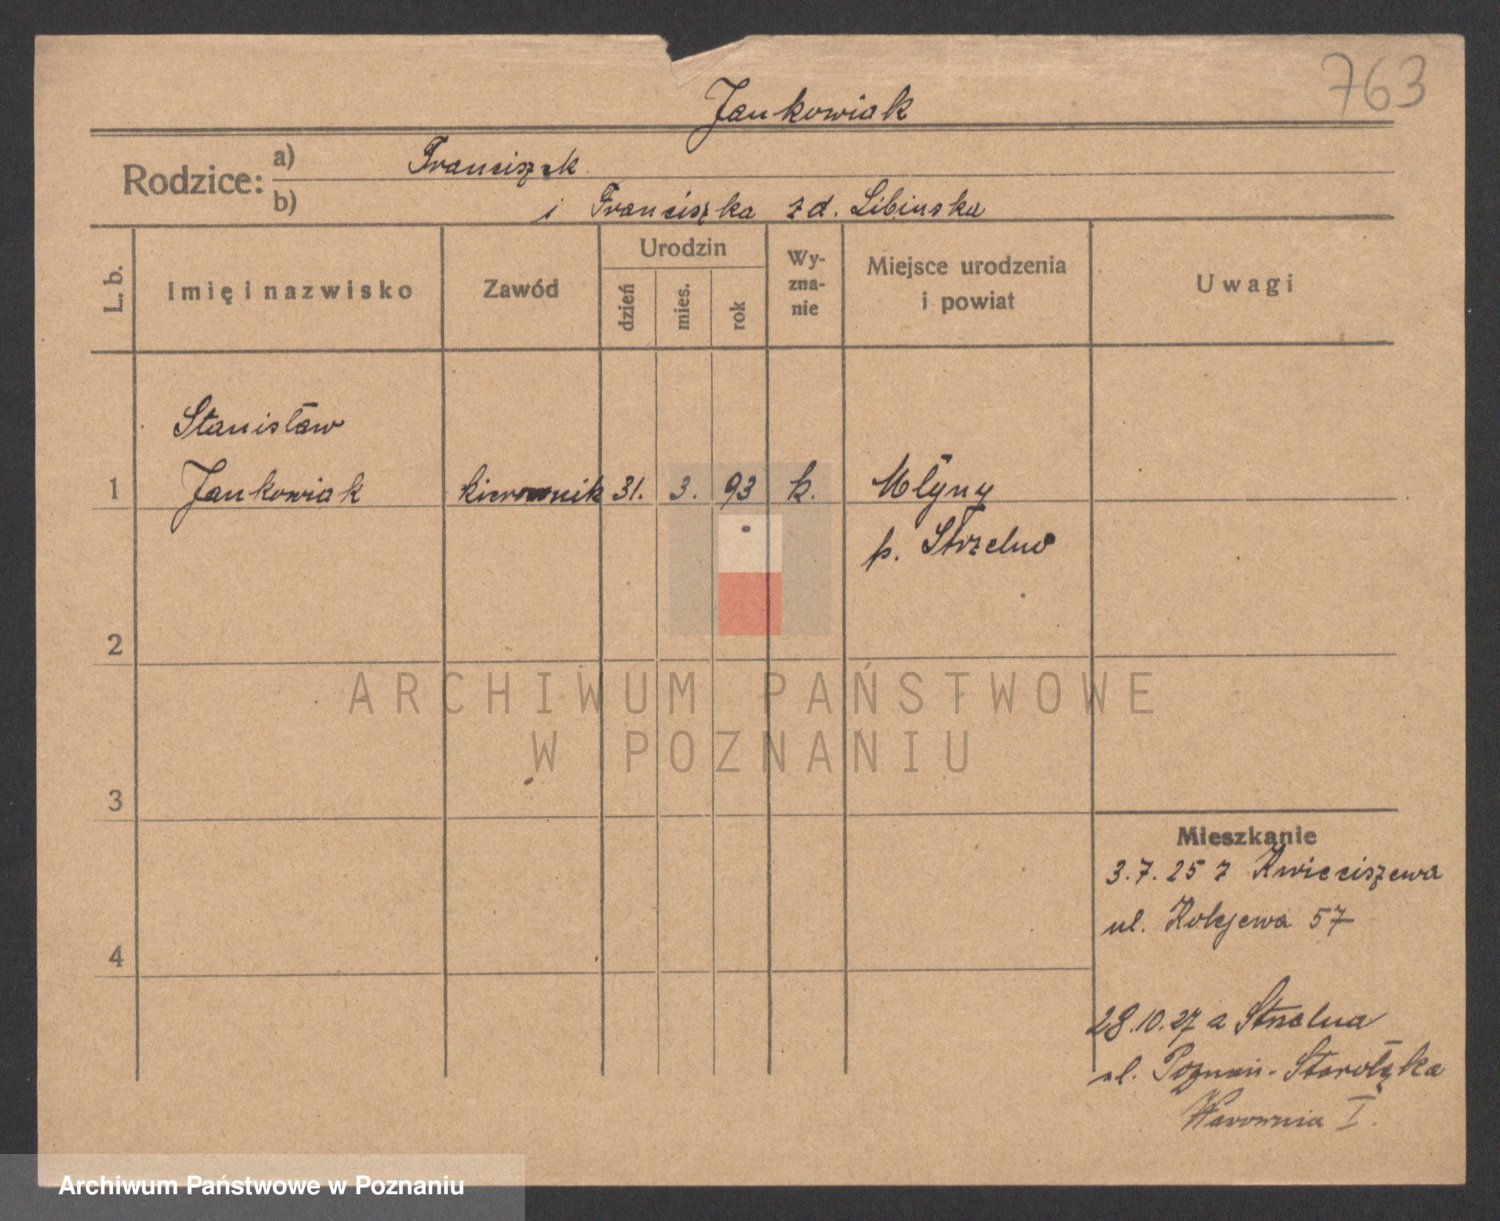 763
Jankowiak
Rodzice: a) Franciszek
b) i Franciszka zd. Libinska
L. b.
Imię i nazwisko
Zawód
Urodzin
dzień
mies.
rok
Wy-
zna-
nie
Miejsce urodzenia
i powiat
Uwagi
Stanisław
1 Jankowiak kierownik 31. 3. 93 k. Młyny
p. Strzelno
2
3
4
Mieszkanie
3.7.25 z Kwieciszewa
ul. Kolejowa 57
28.10.27 a Strzelna
ul. Poznań-Starołęka
Warownia I.
ARCHIWUM PAŃSTWOWE
W POZNANIU
Archiwum Państwowe w Poznaniu